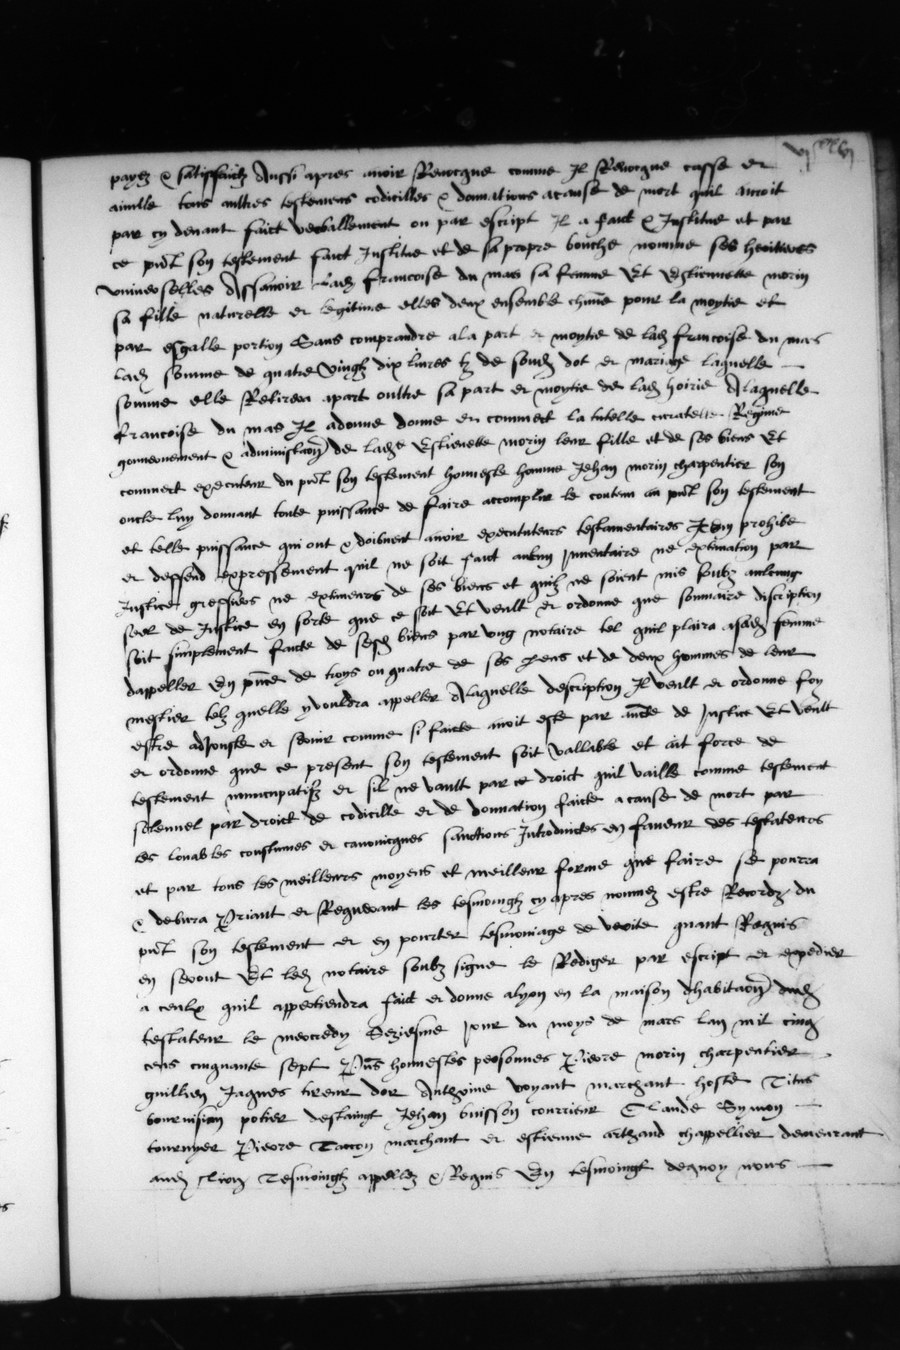 payez & satisfaictz Aussi apres avoir Revocque comme Il Revocque casse et
anulle tous aultres testemens codicilles & donnations acause de mort quil auroit
par cy devant faict verballement ou par escript Il a faict & Institue et par
ce pnt son testement faict Institue et de sa propre bouche nomme ses heritieres
universelles Assavoir lad francoise du mas sa femme Et Estiennette morin
sa fille naturelle et legitime elles deux ensemble chune pour la moytie et
par esgalle portion Sans comprandre a la part et moytie de lad francoise du mas
lad somme de quatre vingtz dix livres tz de sond dot et mariage laquelle
somme elle Retirera apart oultre sa part et moytie de lad hoirie A laquelle
francoise du mas Il adonne donne et commect la tutelle curatelle Regime
gouvernement & administraon de lade Estienette morin leur fille et de ses biens Et
commect executeur du pnt son testement honneste homme Jehan morin charpentier son
oncle luy donnant toute puissance de faire accomplir le contenu au pnt son testement
et telle puissance qui ont & doibvent avoir execututeurs testamentaires Item prohibe
et deffend expressement quil ne soit faict aulcun Inventaire ne extimation par
Justice greffiers ne extimeurs de ses biens et quilz ne soient mis soubz aulcung
seel de Justice en sorte que ce soit Et veult et ordonne que sommaire discription
soit simplement faicte de sesd biens par ung notaire tel quil plaira asad femme
dappeller En pnce de troys ou quatre de ses gens et de deux hommes de leur
mestier telz quelle y vouldra appeller A laquelle description Il veult et ordonne foy
estre adjoustee et servir comme si faicte avoit este par aucte de Justice Et veult
et ordonne que ce present son testement soit vallable et ait force de
testement nuncupatifz et sil ne vault par ce droict quil vaille comme testement
solemnel par droict de codicille et de donnation faicte acause de mort par
les louables coustumes et canonicques sanctions Introduictes en faveur des testateurs
et par tous les meilleurs moyens et meilleur forme que faire se pourra
& debvra Priant et Requerant les tesmoingtz cy apres nommez estre Recordz du
pnt son testement et en pourter tesmoniage de verite quant Requis
en seront Et led notaire soubz signe le Rediger par escript et expedier
a ceulx quil appertiendra faict et donne alyon en la maison dhabitaon dud
testateur le mercredy Seziesme jour du moys de mars lan mil cinq
cens cinquante sept Pns honnestes personnes Pierre morin charpentier
guillien Jaques tireur dor Anthoine voyant marchant hoste Titus
potier destaingt Jehan buisson courrieur Claude Symon
tournyer Pierre Taccon marchant et estienne arthaud chappellier demeurant
aud Lion Tesmoingtz appellez & Requis En tesmoingt dequoy nous